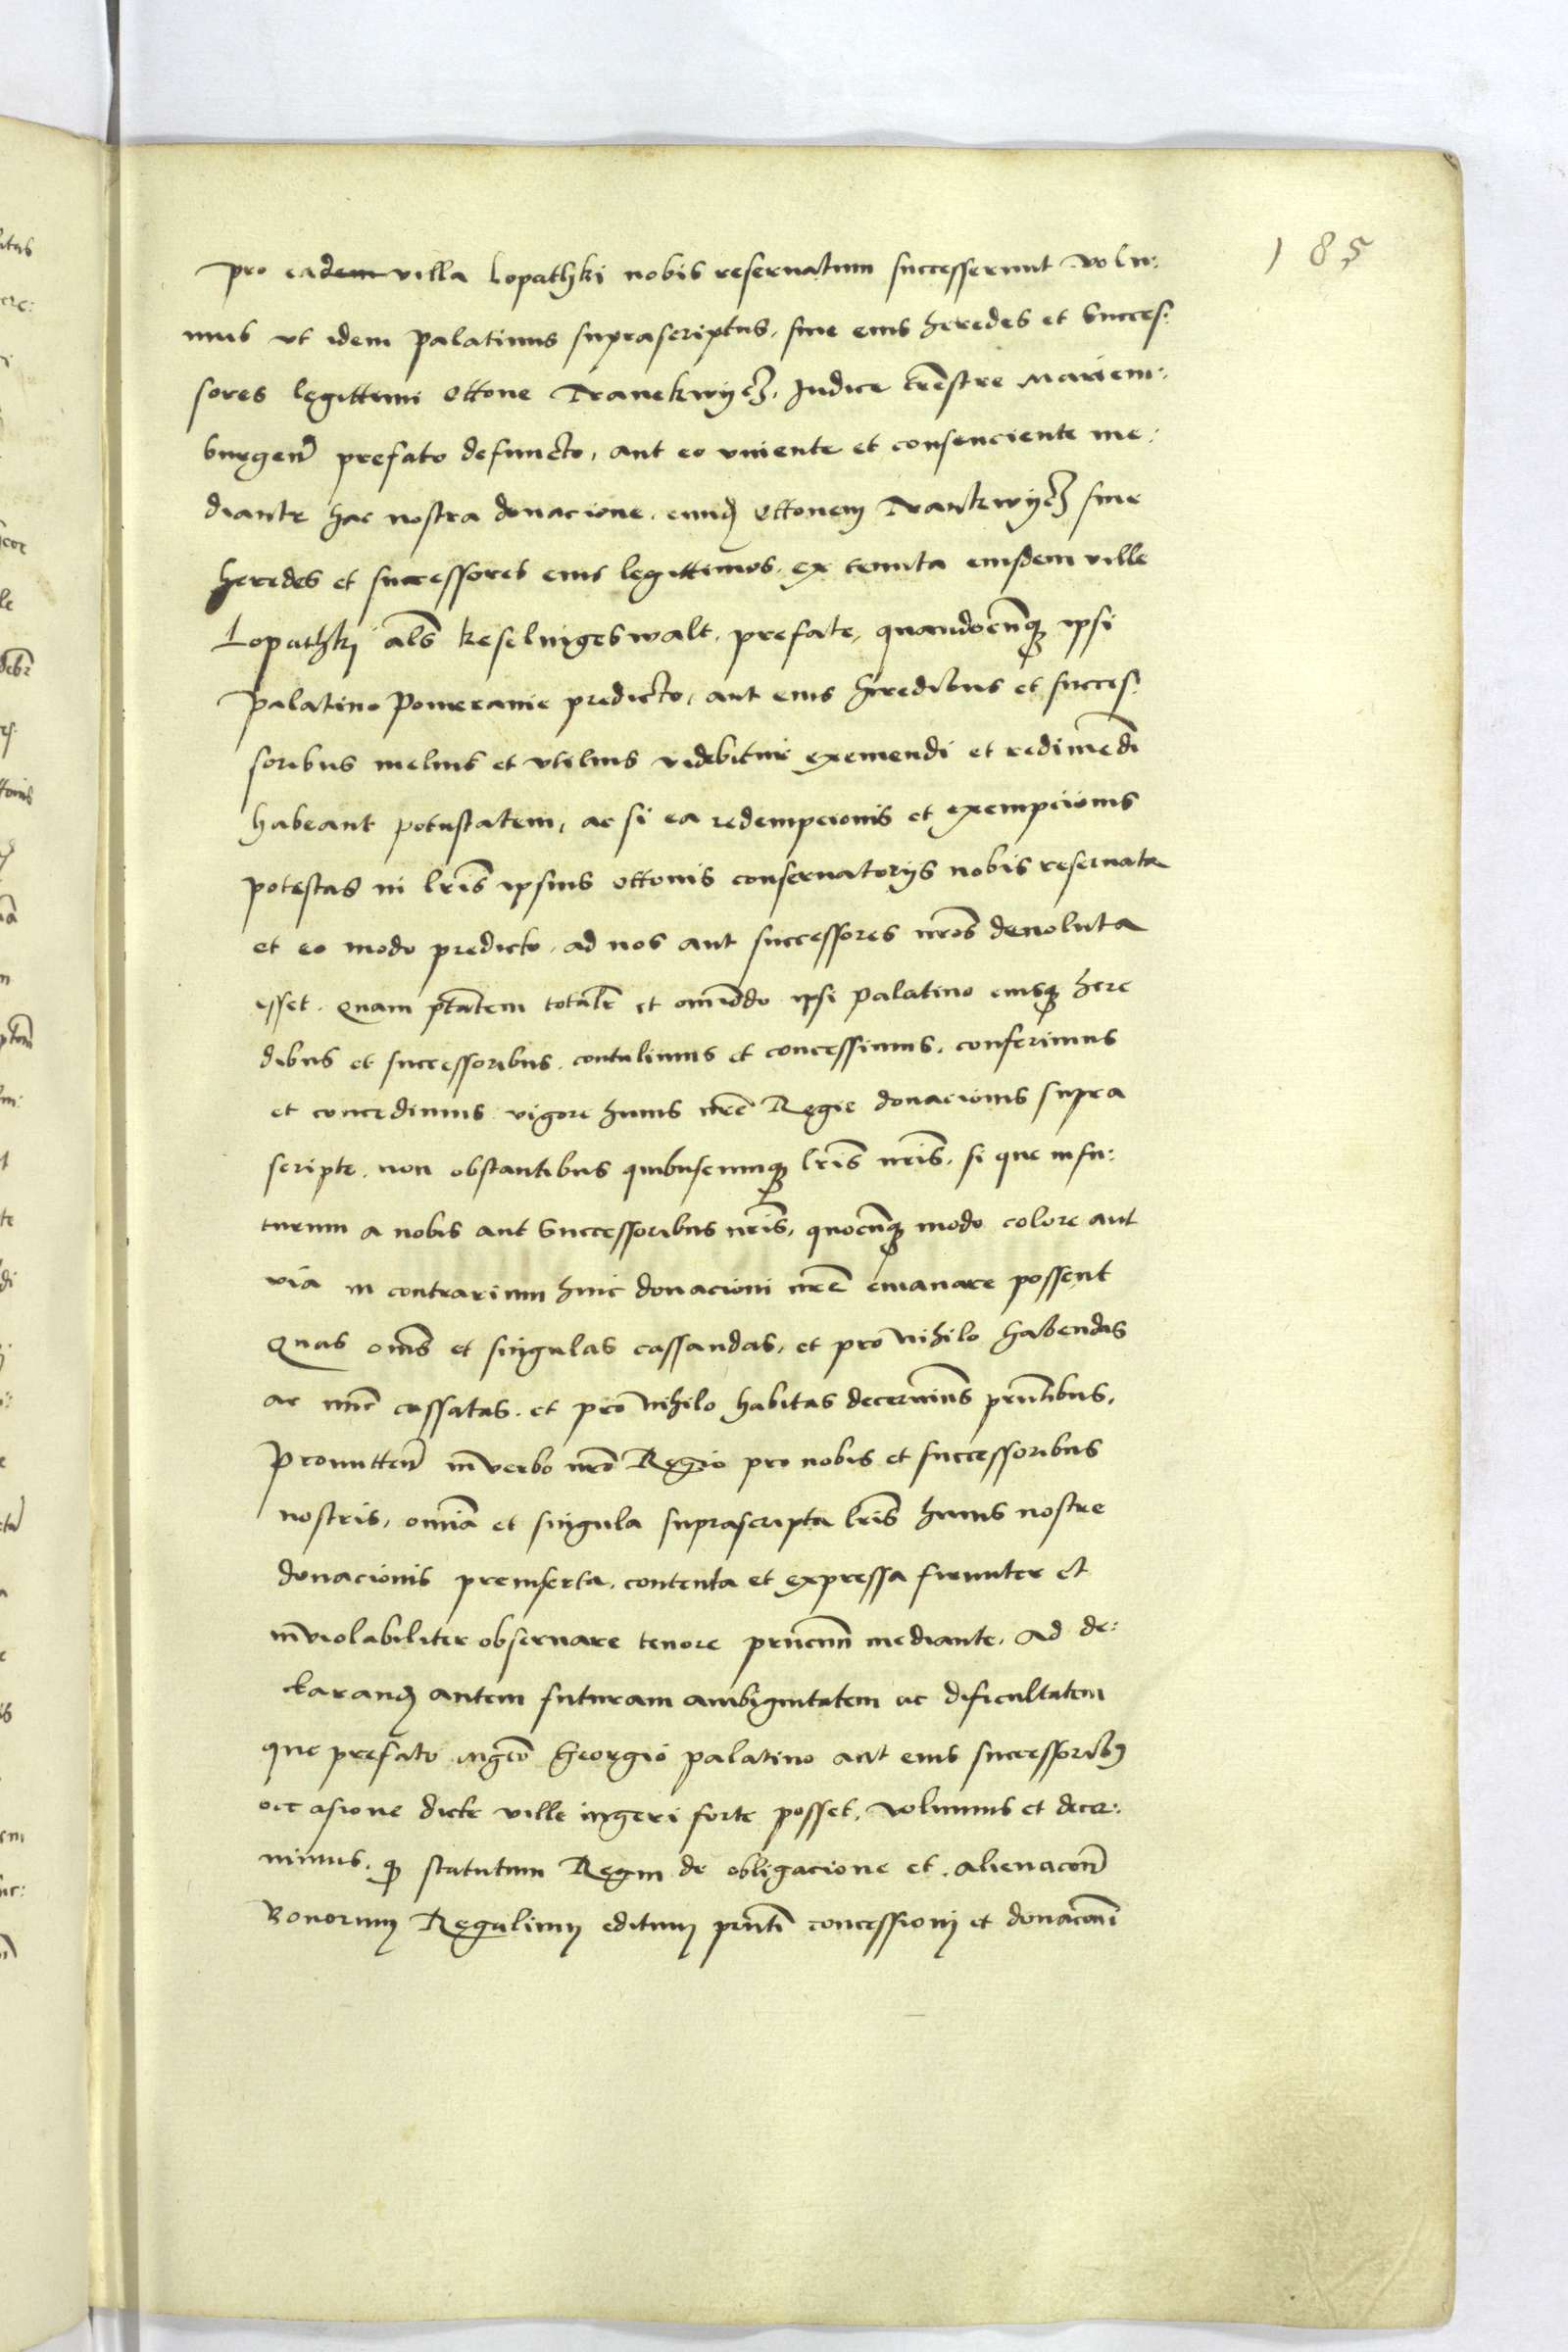 185
pro eadem villa Lopathki nobis reseruatum successerunt volu:
mus vt idem palatinus suprascriptus, siue eius heredes et succes:
sores legittimi Ottone Tranckwycz, Iudice trestre Mariem:
burgen̄ prefato defuncto, aut eo viuente et consenciente me:
diante hac nostra donacione, eund̄ Ottonem Trankwycz siue
heredes et successores eius legittimos, ex tenuta eiusdem ville
Lopathkj als̄ keselingeswalt, prefate, quandocūq̄ ipsi
palatino Pomeranie predicto, aut eius heredibus et succes:
soribus melius et vtilius videbitur exemendi et redimēdi
habeant potestatem, ac si ea redempcionis et exempcionis
potestas in lr̄is ipsius Ottonis conseruatorijs nobis reseruata
et eo modo predicto, ad nos aut successores nr̄os deuoluta
esset. Quam ptātem totalē et omīodo ipsi palatino eiusq̄ here
dibus et successoribus, contulimus et concessimus, conferimus
et concedimus vigore huius nr̄e Regie donacionis supra
scripte, non obstantibus quibuscunq̄ lr̄is nr̄is, si que in fu:
turum a nobis aut Successoribus nr̄is, quocūq̄ modo colore aut
via in contrarium huic donacioni nr̄e emanare possent
Quas om̄s et singulas cassandas, et pro nihilo habendas
ac nūc cassatas, et pro nihilo habitas decernimus pn̄tibus,
Promitten̄ in verbo nr̄o Regio pro nobis et successoribus
nostris, omīa et singula suprascripta lr̄is huius nostre
donacionis preinserta, contenta et expressa firmiter et
inviolabiliter obseruare tenore pn̄cium mediante. Ad de:
clarand̄ autem futuram ambiguitatem ac dificultatem
que prefato mgco Georgio palatino aut eius successorib9
occasione dicte ville ingeri forte posset, volumus et decer:
nimus, q̄ statutum Regni de obligacione et alienacōn̄
Bonorum Regalium editum pn̄ti concessionj et donacōni